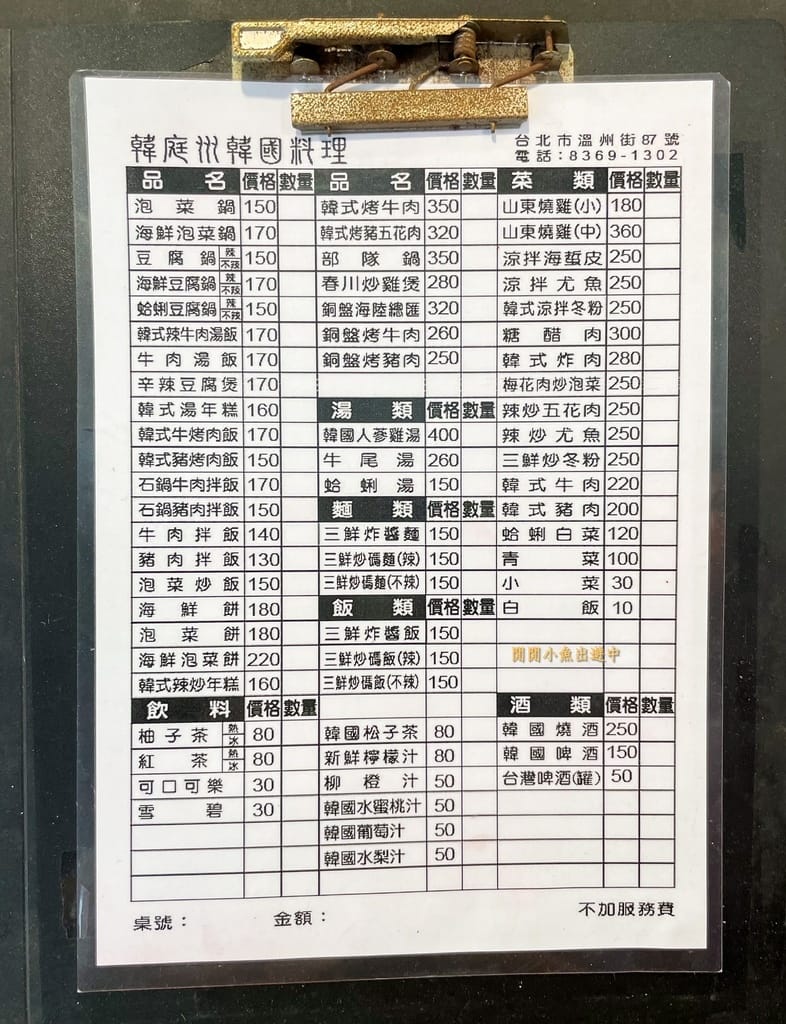 韓庭州韓國料理
台北市溫州街87號
電話：8369-1302
品名 價格 數量
泡菜鍋 150
海鮮泡菜鍋 170
豆腐鍋 辣 不辣 150
海鮮豆腐鍋 辣 不辣 170
蛤蜊豆腐鍋 辣 不辣 150
韓式辣牛肉湯飯 170
牛肉湯飯 170
辛辣豆腐煲 170
韓式湯年糕 160
韓式牛烤肉飯 170
韓式豬烤肉飯 150
石鍋牛肉拌飯 170
石鍋豬肉拌飯 150
牛肉拌飯 140
豬肉拌飯 130
泡菜炒飯 150
海鮮餅 180
泡菜餅 180
海鮮泡菜餅 220
韓式辣炒年糕 160
飲料 價格 數量
柚子茶 熱 冰 80
紅茶 熱 冰 80
可口可樂 30
雪碧 30
品名 價格 數量
韓式烤牛肉 350
韓式烤豬五花肉 320
部隊鍋 350
春川炒雞煲 280
銅盤海陸總匯 320
銅盤烤牛肉 260
銅盤烤豬肉 250
湯類 價格 數量
韓國人蔘雞湯 400
牛尾湯 260
蛤蜊湯 150
麵類 價格 數量
三鮮炸醬麵 150
三鮮炒碼麵(辣) 150
三鮮炒碼麵(不辣) 150
飯類 價格 數量
三鮮炸醬飯 150
三鮮炒碼飯(辣) 150
三鮮炒碼飯(不辣) 150
韓國松子茶 80
新鮮檸檬汁 80
柳橙汁 50
韓國水蜜桃汁 50
韓國葡萄汁 50
韓國水梨汁 50
菜類 價格 數量
山東燒雞(小) 180
山東燒雞(中) 360
涼拌海蜇皮 250
涼拌尤魚 250
韓式涼拌冬粉 250
糖醋肉 300
韓式炸肉 280
梅花肉炒泡菜 250
辣炒五花肉 250
辣炒尤魚 250
三鮮炒冬粉 250
韓式牛肉 220
韓式豬肉 200
蛤蜊白菜 120
青菜 100
小菜 30
白飯 10
閒閒小魚出遊中
酒類 價格 數量
韓國燒酒 250
韓國啤酒 150
台灣啤酒(罐) 50
桌號：
金額：
不加服務費